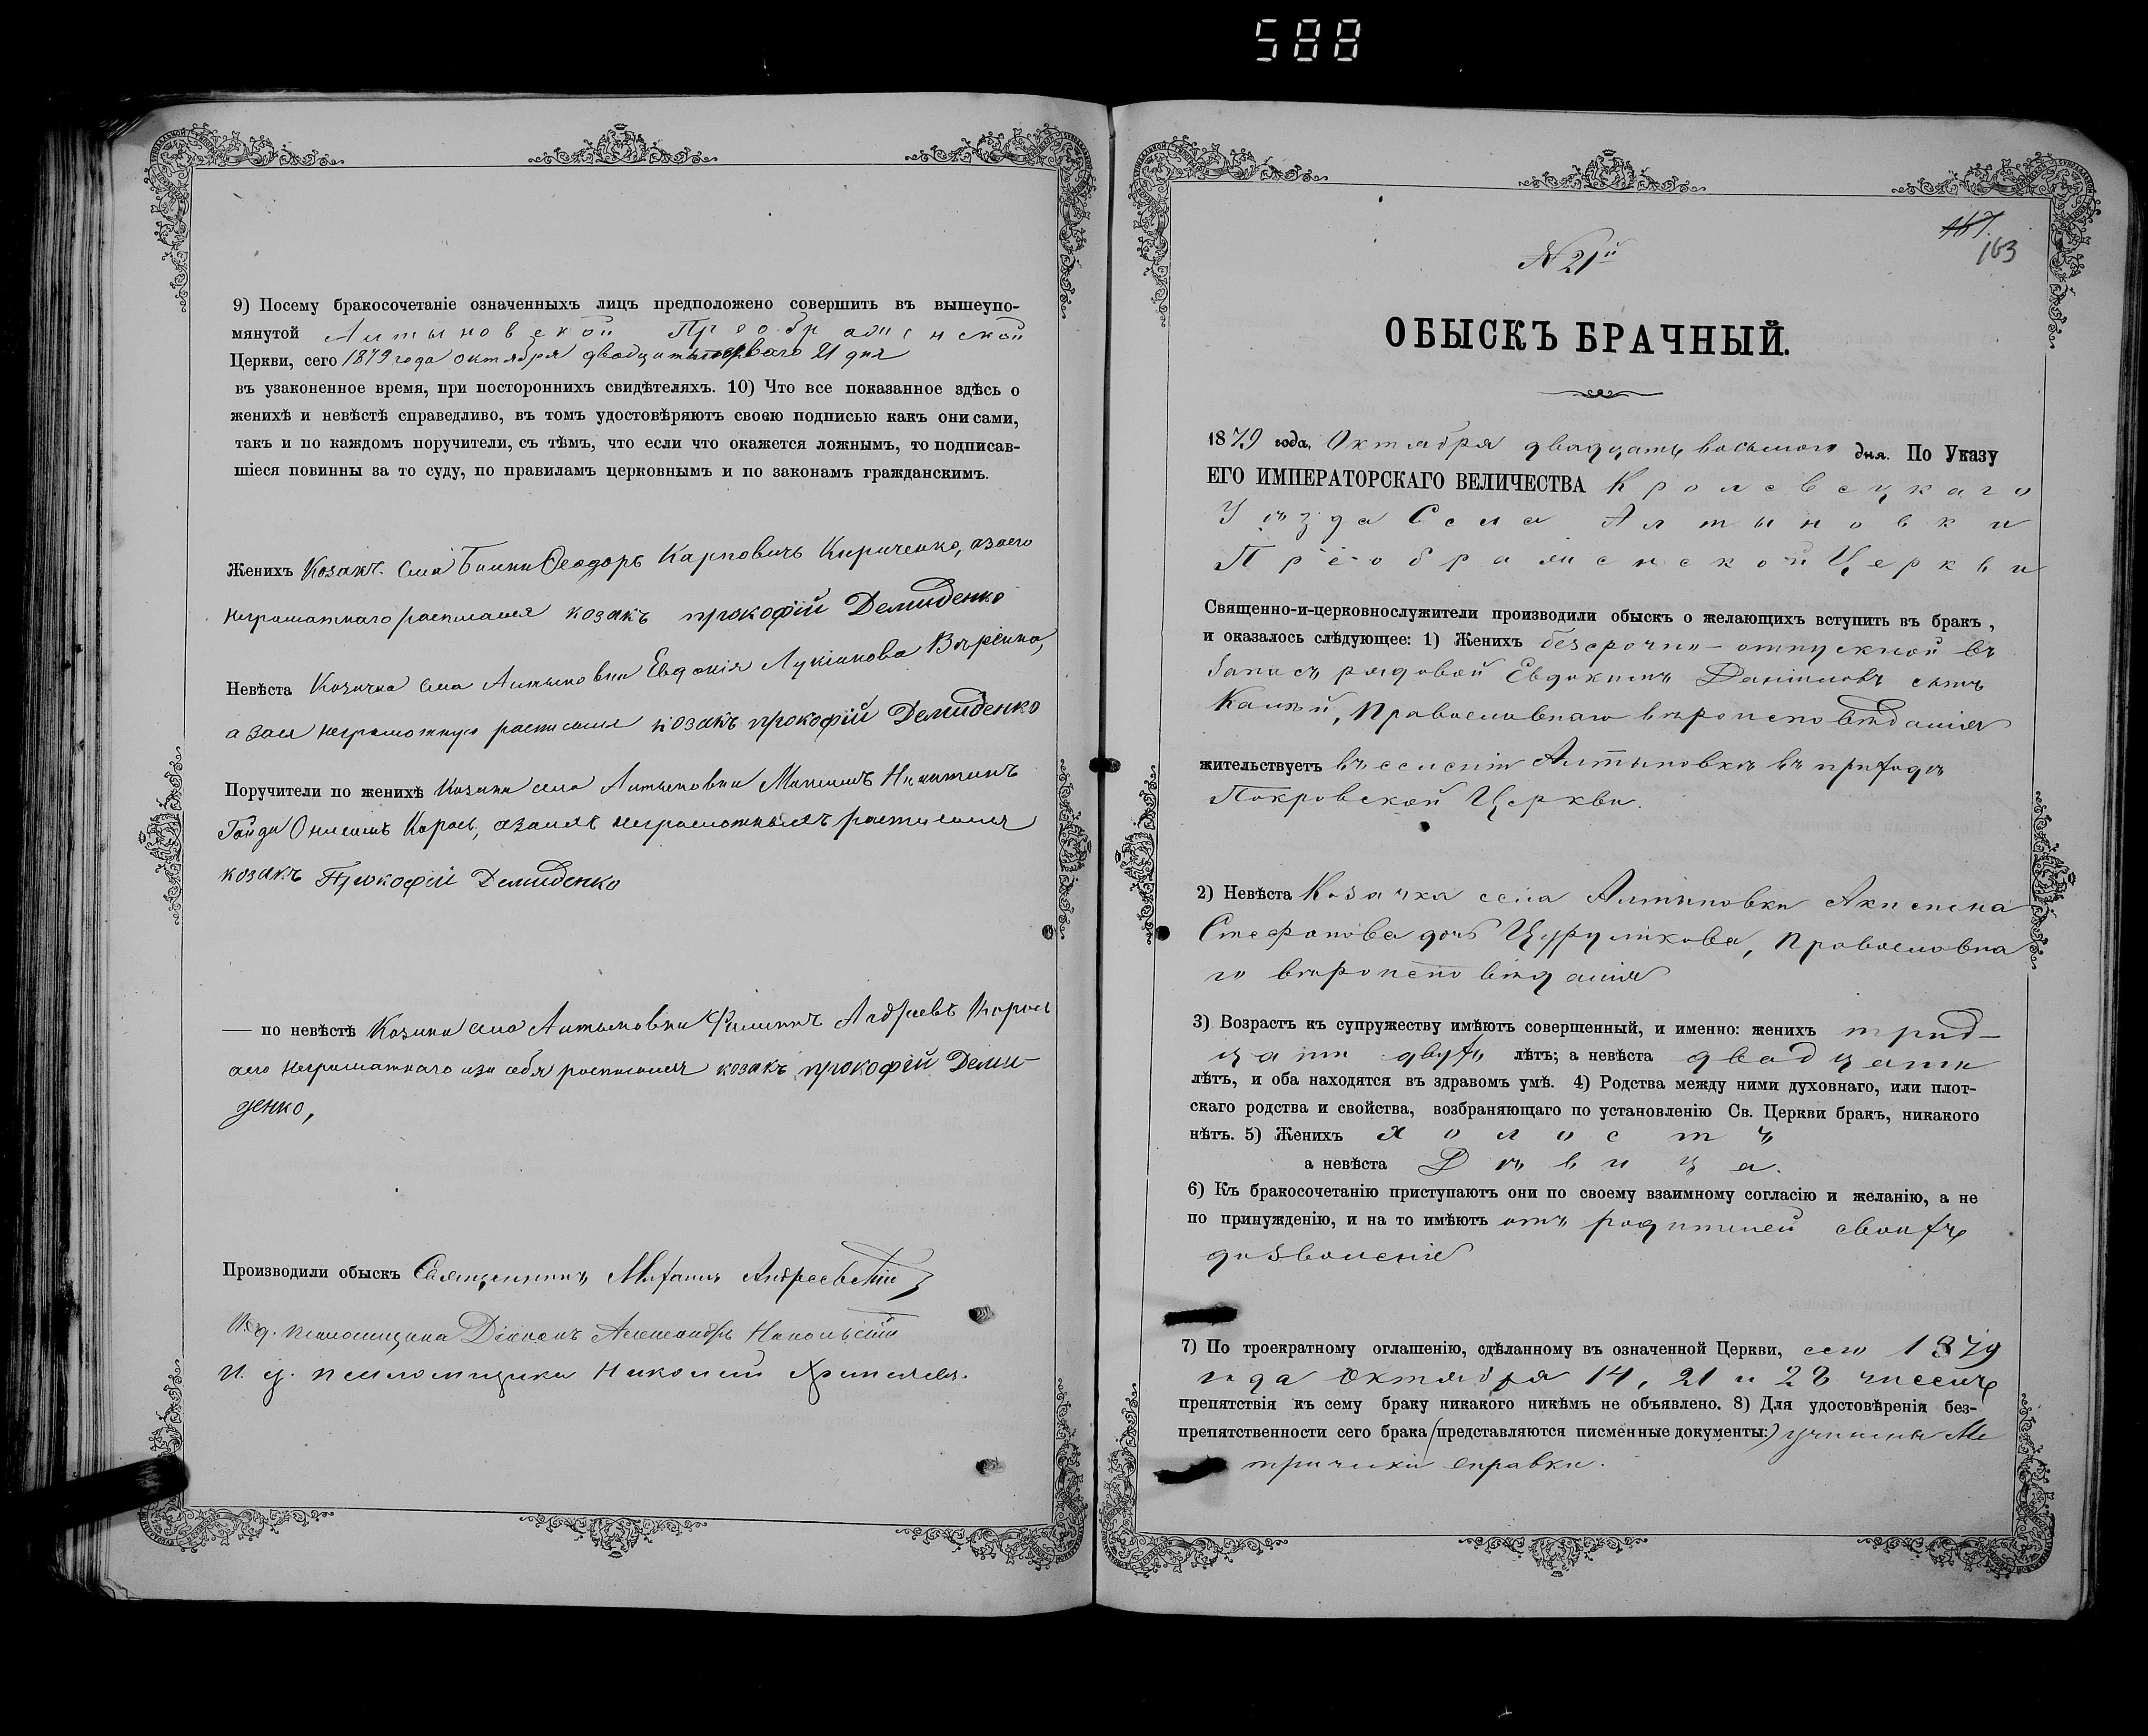 588
9) Посему бракосочетаніе означенныхъ лицъ предположено совершить въ вышеупо-
мянутой Алтыновской Преображенской
Церкви, сего 1879 года октября двадцать перваго 21 дня
въ узаконенное время, при постороннихъ свидѣтеляхъ. 10) Что все показанное здѣсь о
женихѣ и невѣстѣ справедливо, въ томъ удостовѣряютъ своею подписью какъ они сами,
такъ и по каждомъ поручители, съ тѣмъ, что если что окажется ложнымъ, то подписав-
шіеся повинны за то суду, по правиламъ церковнымъ и по законамъ гражданскимъ.
Женихъ Козакъ села Ѳеодоръ Карповичъ Кириченко, азаего
неграматнаго росписался козакъ прокофій Демиденко
Невѣста Козачка села Алтыновки Евдокія Лукіанова
а зая неграмотную росписался козакъ прокофій Демиденко
Поручители по женихѣ Козаки села Алтыновки Никитинъ
Гайда Онисимъ Король, азаихъ неграмотныхъ росписался
козакъ Прокофій Демиденко
— по невѣстѣ Козаки села Алтыновки Филиппъ Андреевъ Король
аего неграматнаго иза себя росписался козакъ прокофій Деми-
денко,
Производили обыскъ Священникъ Михаилъ Андреевскій
И. д. псаломщика Діаконъ Александръ Никольскій
И. д. псаломщика Николай
167.
163
N 21й
ОБЫСКЪ БРАЧНЫЙ.
1879 года, Октября двадцать восьмого дня. По Указу
ЕГО ИМПЕРАТОРСКАГО ВЕЛИЧЕСТВА Кролевецкаго
Уѣзда Села Алтыновки
Преображенской Церкви
Священно-и-церковнослужители производили обыскъ о желающихъ вступить въ бракъ,
и оказалось слѣдующее: 1) Женихъ безсрочно-отпускной въ
запасъ рядовой Евдокимъ Даніиловъ сынъ
Калѣй, Православнаго вѣроисповѣданія
жительствуетъ въ селеніи Алтыновкѣ въ приходѣ
Покровской Церкви.
2) Невѣста Козачка села Алтыновки Акилина
Стефанова дочь Цурупикова, Православна
го вѣроисповѣданія
3) Возрастъ къ супружеству имѣютъ совершенный, и именно: женихъ трид-
цати двухъ лѣтъ; а невѣста двадцати
лѣтъ, и оба находятся въ здравомъ умѣ. 4) Родства между ними духовнаго, или плот-
скаго родства и свойства, возбраняющаго по установленію Св. Церкви бракъ, никакого
нѣтъ. 5) Женихъ Холостъ
а невѣста Дѣвица.
6) Къ бракосочетанію приступаютъ они по своему взаимному согласію и желанію, а не
по принужденію, и на то имѣютъ отъ родителей своихъ
дозволеніе
7) По троекратному оглашенію, сдѣланному въ означенной Церкви, сего 1879
года Октября 14, 21 и 28 чиселъ
препятствія къ сему браку никакого никѣмъ не объявлено. 8) Для удостовѣренія без-
препятственности сего брака (представляются писменные документы:) учинены Ме
трическія справки.